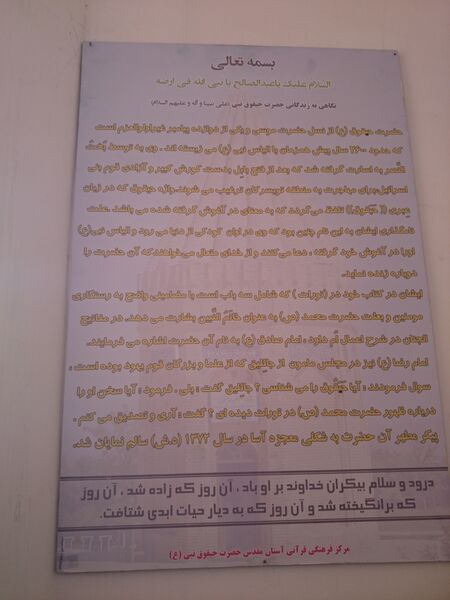 بسمه تعالی
السلام علیک یا عبدالصالح یا نبی الله فی ارضه
نگاهی به زندگانی حضرت حیقوق نبی (علی نبینا و آله و علیهم السلام)
حضرت حیقوق (ع) از نسل حضرت موسی و یکی از دوازده پیامبر غیراولوالعزم است
که حدود ۲۶۰۰ سال پیش همزمان با الیاس نبی (ع) می زیسته اند . وی به توسط بُخت
النَّصر به اسارت گرفته شد که بعد از فتح بابل بدست کورش کبیر و آزادی قوم بنی
اسرائیل،برای مهاجرت به منطقه تویسرکان ترغیب می شوند.واژه حیقوق که در زبان
عبری (( )) تلفظ می‌گردد که به معنای در آغوش گرفته شده می باشد .علت
نامگذاری ایشان به این نام چنین بود که وی در اوان کودکی از دنیا می رود و الیاس نبی(ع)
اورا در آغوش خود گرفته ، دعا می‌کنند و از خدای متعال می‌خواهند که آن حضرت را
دوباره زنده نماید.
ایشان در کتاب خود در (تورات ) که شامل سه باب است با مضامینی واضح به رستگاری
مومنین و بعثت حضرت محمد (ص) به عنوان خاتمُ النَّبیین بشارت می دهد. در مفاتیح
الجنان در شرح اعمال اُم داود ، امام صادق (ع) به نام آن حضرت اشاره می فرمایند.
امام رضا (ع) نیز در مجلس مامون از جاثلیق که از علما و بزرگان قوم یهود بوده است ،
سوال فرمودند : آیا حیقوق را می شناسی ؟ جاثلیق گفت : بلی . فرمود : آیا سخن او را
درباره ظهور حضرت محمد (ص) در تورات دیده ای ؟ گفت : آری و تصدیق می کنم .
پیکر مطهر آن حضرت به شکلی معجزه آسا در سال ۱۳۷۲ (ه.ش) سالم نمایان شد.
درود و سلام بیکران خداوند بر او باد ، آن روز که زاده شد ، آن روز
که برانگیخته شد و آن روز که به دیار حیات ابدی شتافت.
مرکز فرهنگی قرآنی آستان مقدس حضرت حیقوق نبی (ع)